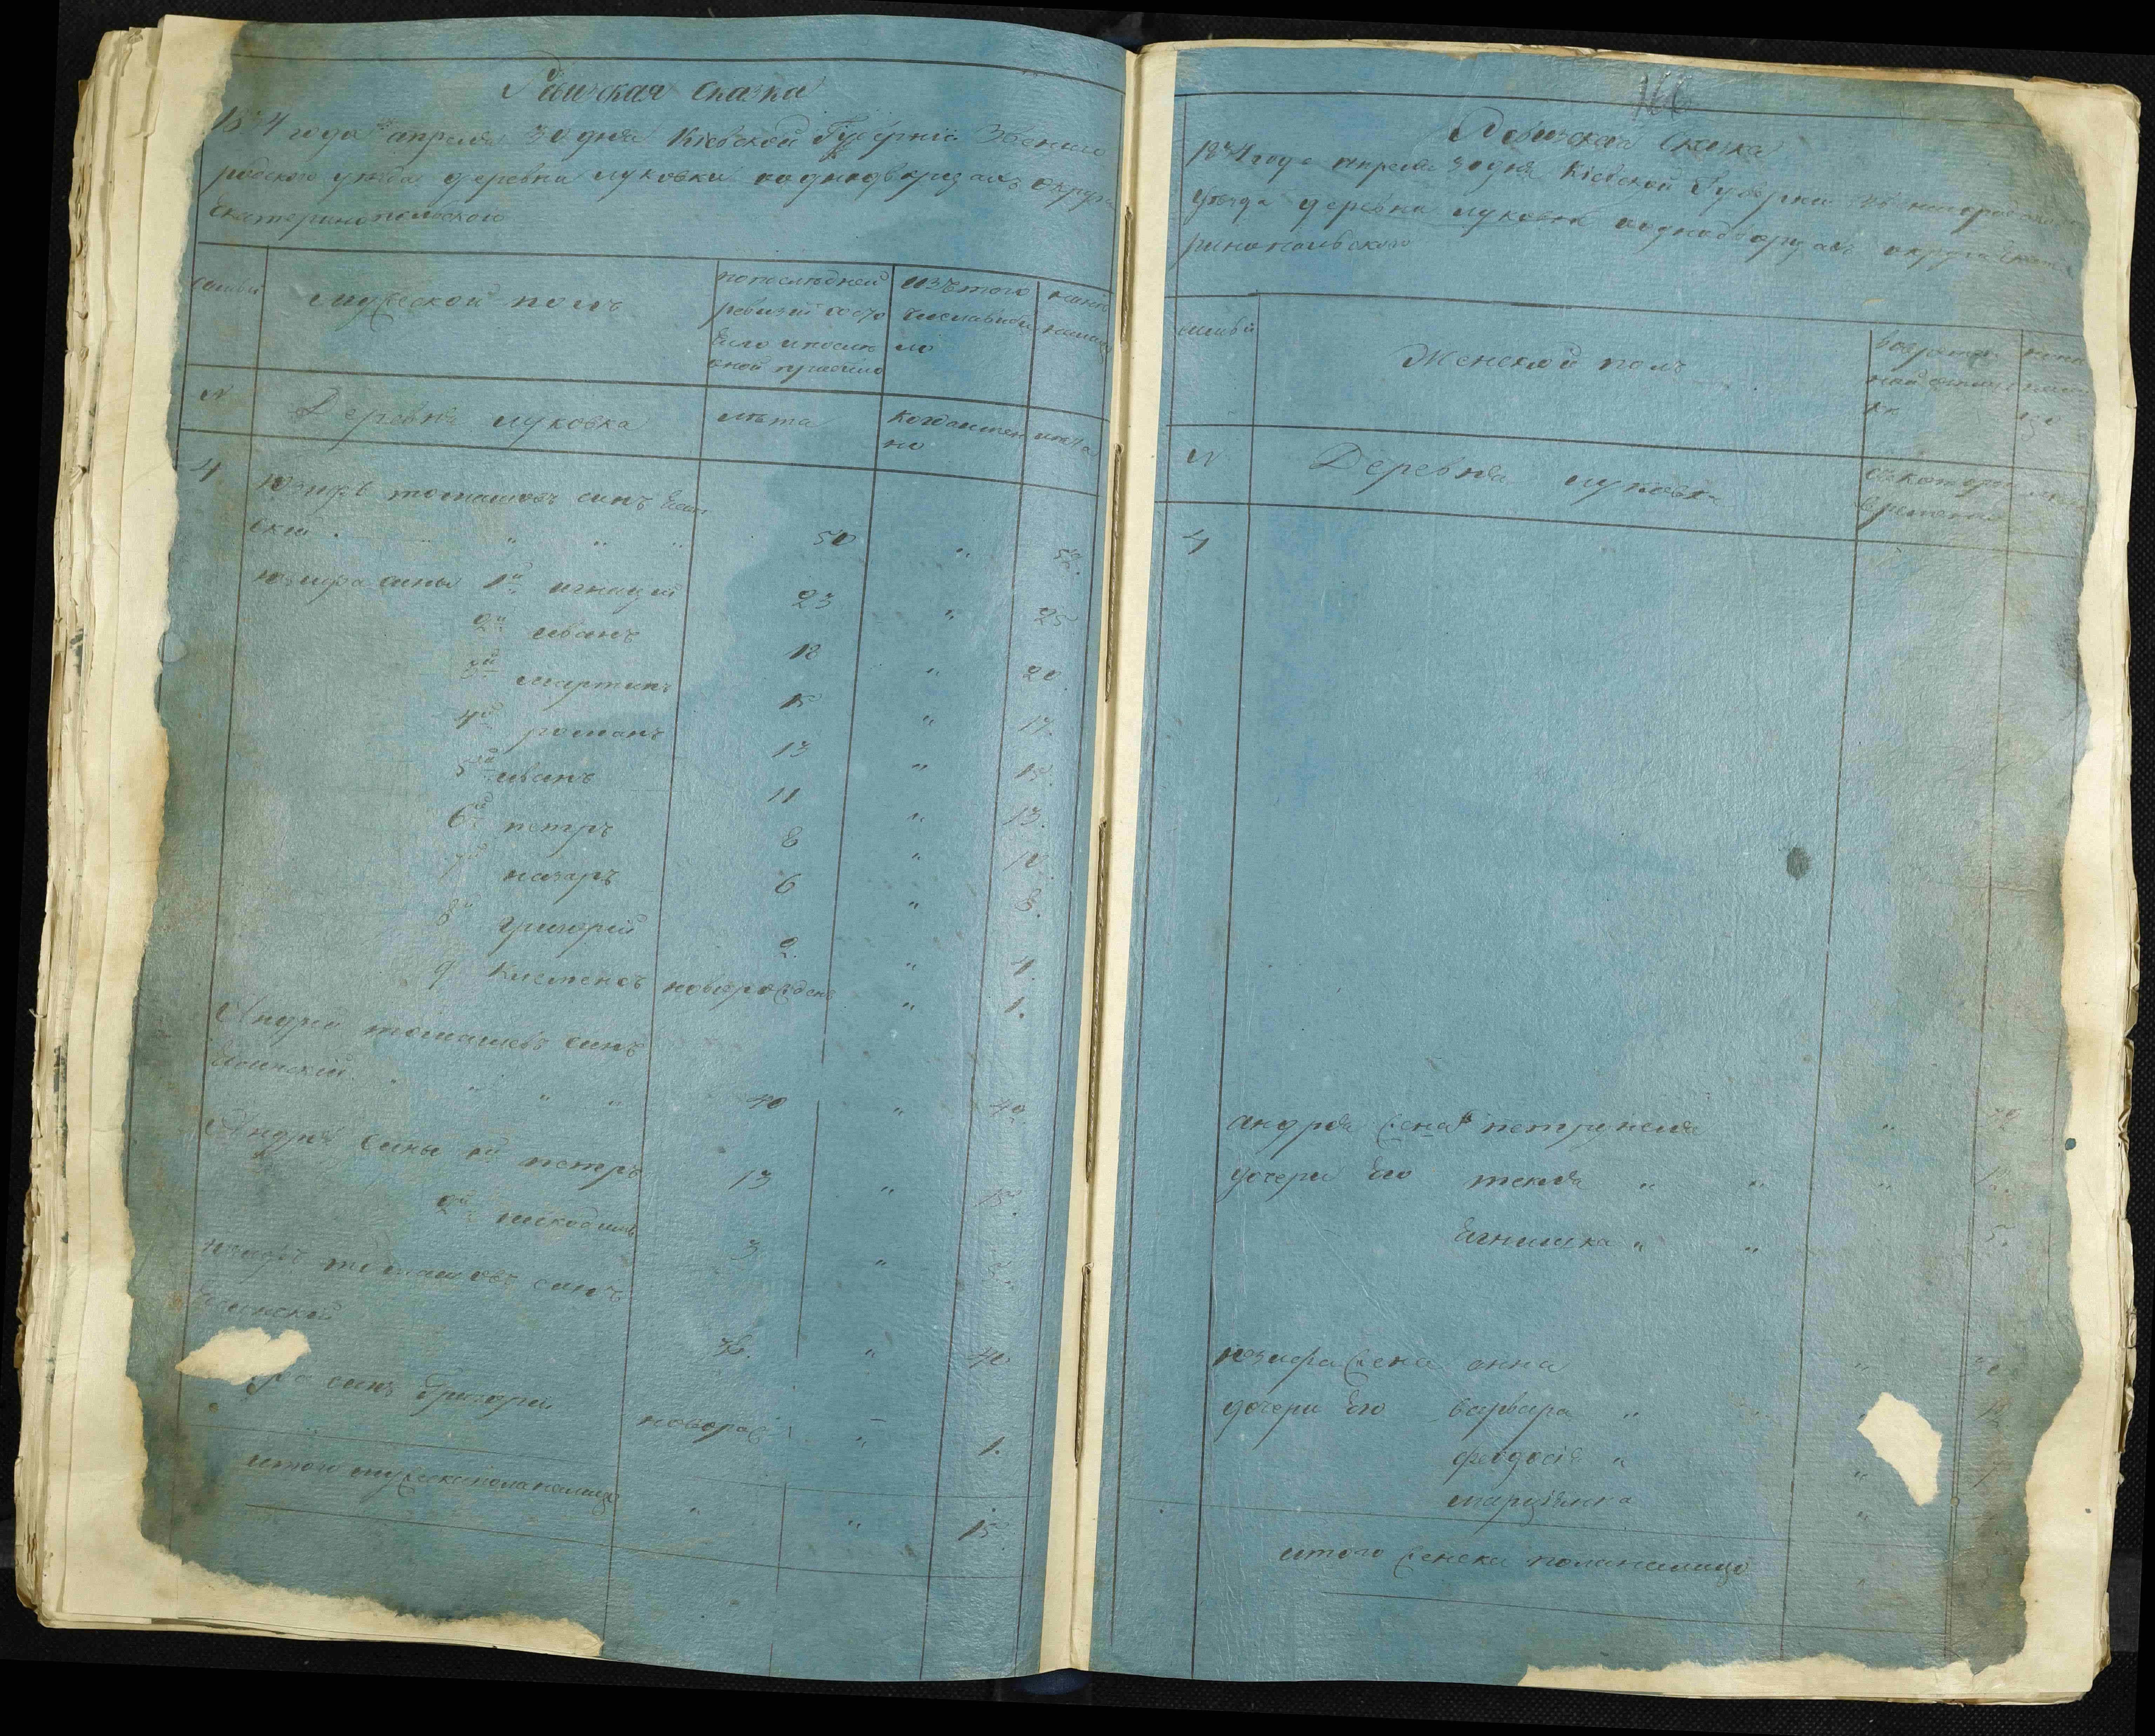 Ревизская Сказка
1834 года апреля 30 дня Кіевской Губерніи Звениго
родского уезда деревни луковки о однодворцахъ округа
Екатеринопольской
семьи
мужеской полъ
попоследней
ревизіи состо
яло и после
оной прибыло
изътого
числа выбы
ло
ныне
налицо
N
Деревня луковка
лета
когда имен
но
лета
4
Юзифъ томашовъ синъ
ски
50
52.
Юзифа сины 1й игнацій
23
25
2й иванъ
18
20.
3й мартинъ
15
17.
4й романъ
13
15.
5й иванъ
11
13.
6й петръ
8
10.
7й назаръ
6
8.
8й григорій
2.
4.
9 Клеменсъ новорожденъ
1.
Андрей томашевъ синъ
40
42.
Андрея сины 1й петръ
13
15.
2й никодимъ
3
Юзифъ томашовъ синъ
38.
40
синъ Григорій
новорож
1.
итого мужеска пола налицо
15
166
Ревизская Сказка
1834 года апреля 30 дня Кіевской Губерніи
уезда деревни луковки о однодворцахъ округа Екате
ринопольского
семьи
Женской полъ
N
Деревня луковка
съ котораго
времени
4
андрея жена петрунеля
дочери его текля
Ягнишка
5.
юзифа жена анна
дочери его варвара
феодосія
маріянна
итого женска пола налицо